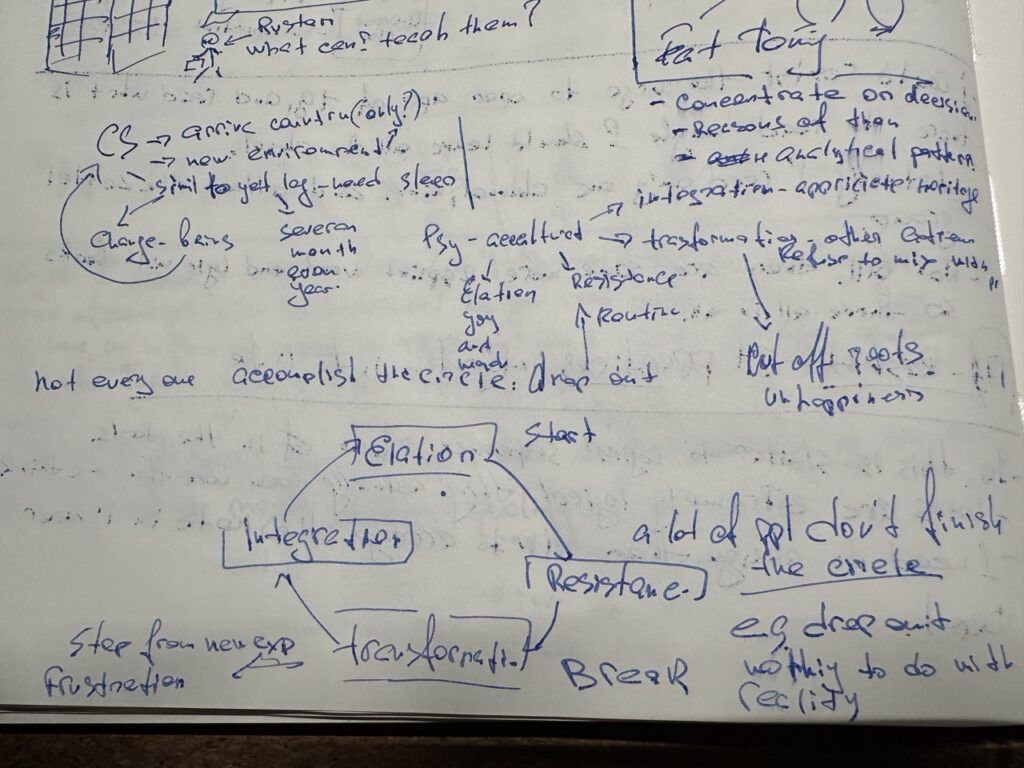 Rustan
what can? teach them?
Fat Tony
- concentrate on decision
- Reasons of than
- analytical pattern
CS → arrive country (only?)
→ new environment
→ simil to yet lag - need sleep
Change - being
several
month
even
year.
integration - appriciete heritage
Psy - accultured → trasformation - other extrem
Refuse to mix with
Elation
joy
and
Resistance
Routine
cut off roots
unhappiness
not every one accomplist the circle. drop out
Elation
Start
Integration
Resistance.
transformation
Break
Step from new exp
frustration
a lot of ppl don't finish
the circle
e.g drop out
nothiy to do with
reality